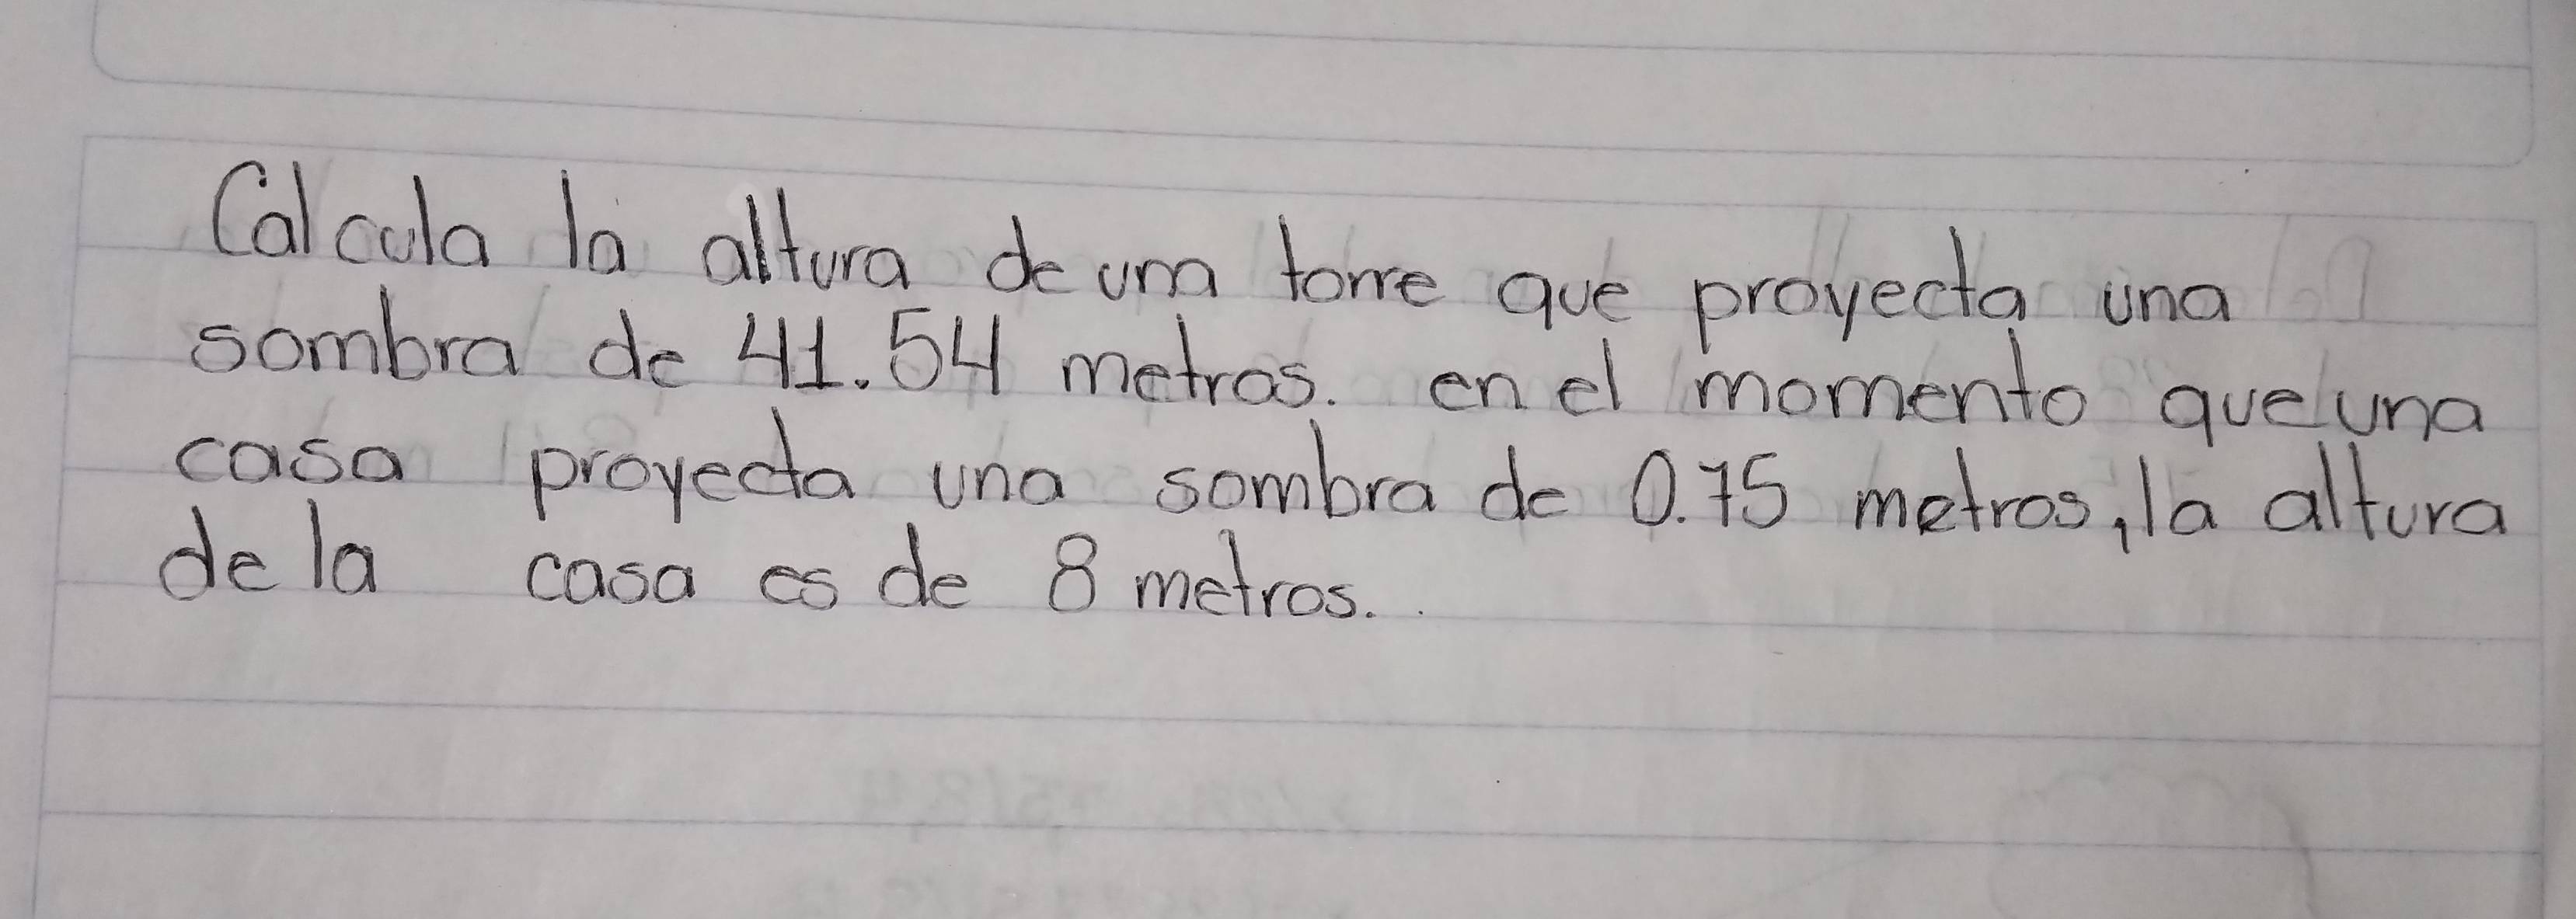 Calcula la altura de una torre que proyecta una
sombra de 41.54 metros. en el momento que una
casa proyecta una sombra de 0.75 metros, la altura
de la casa es de 8 metros.